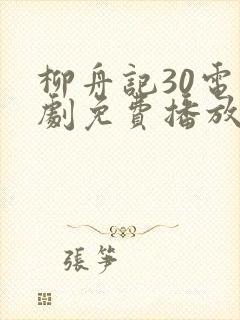 柳舟記30電
劇免費播放
張筝